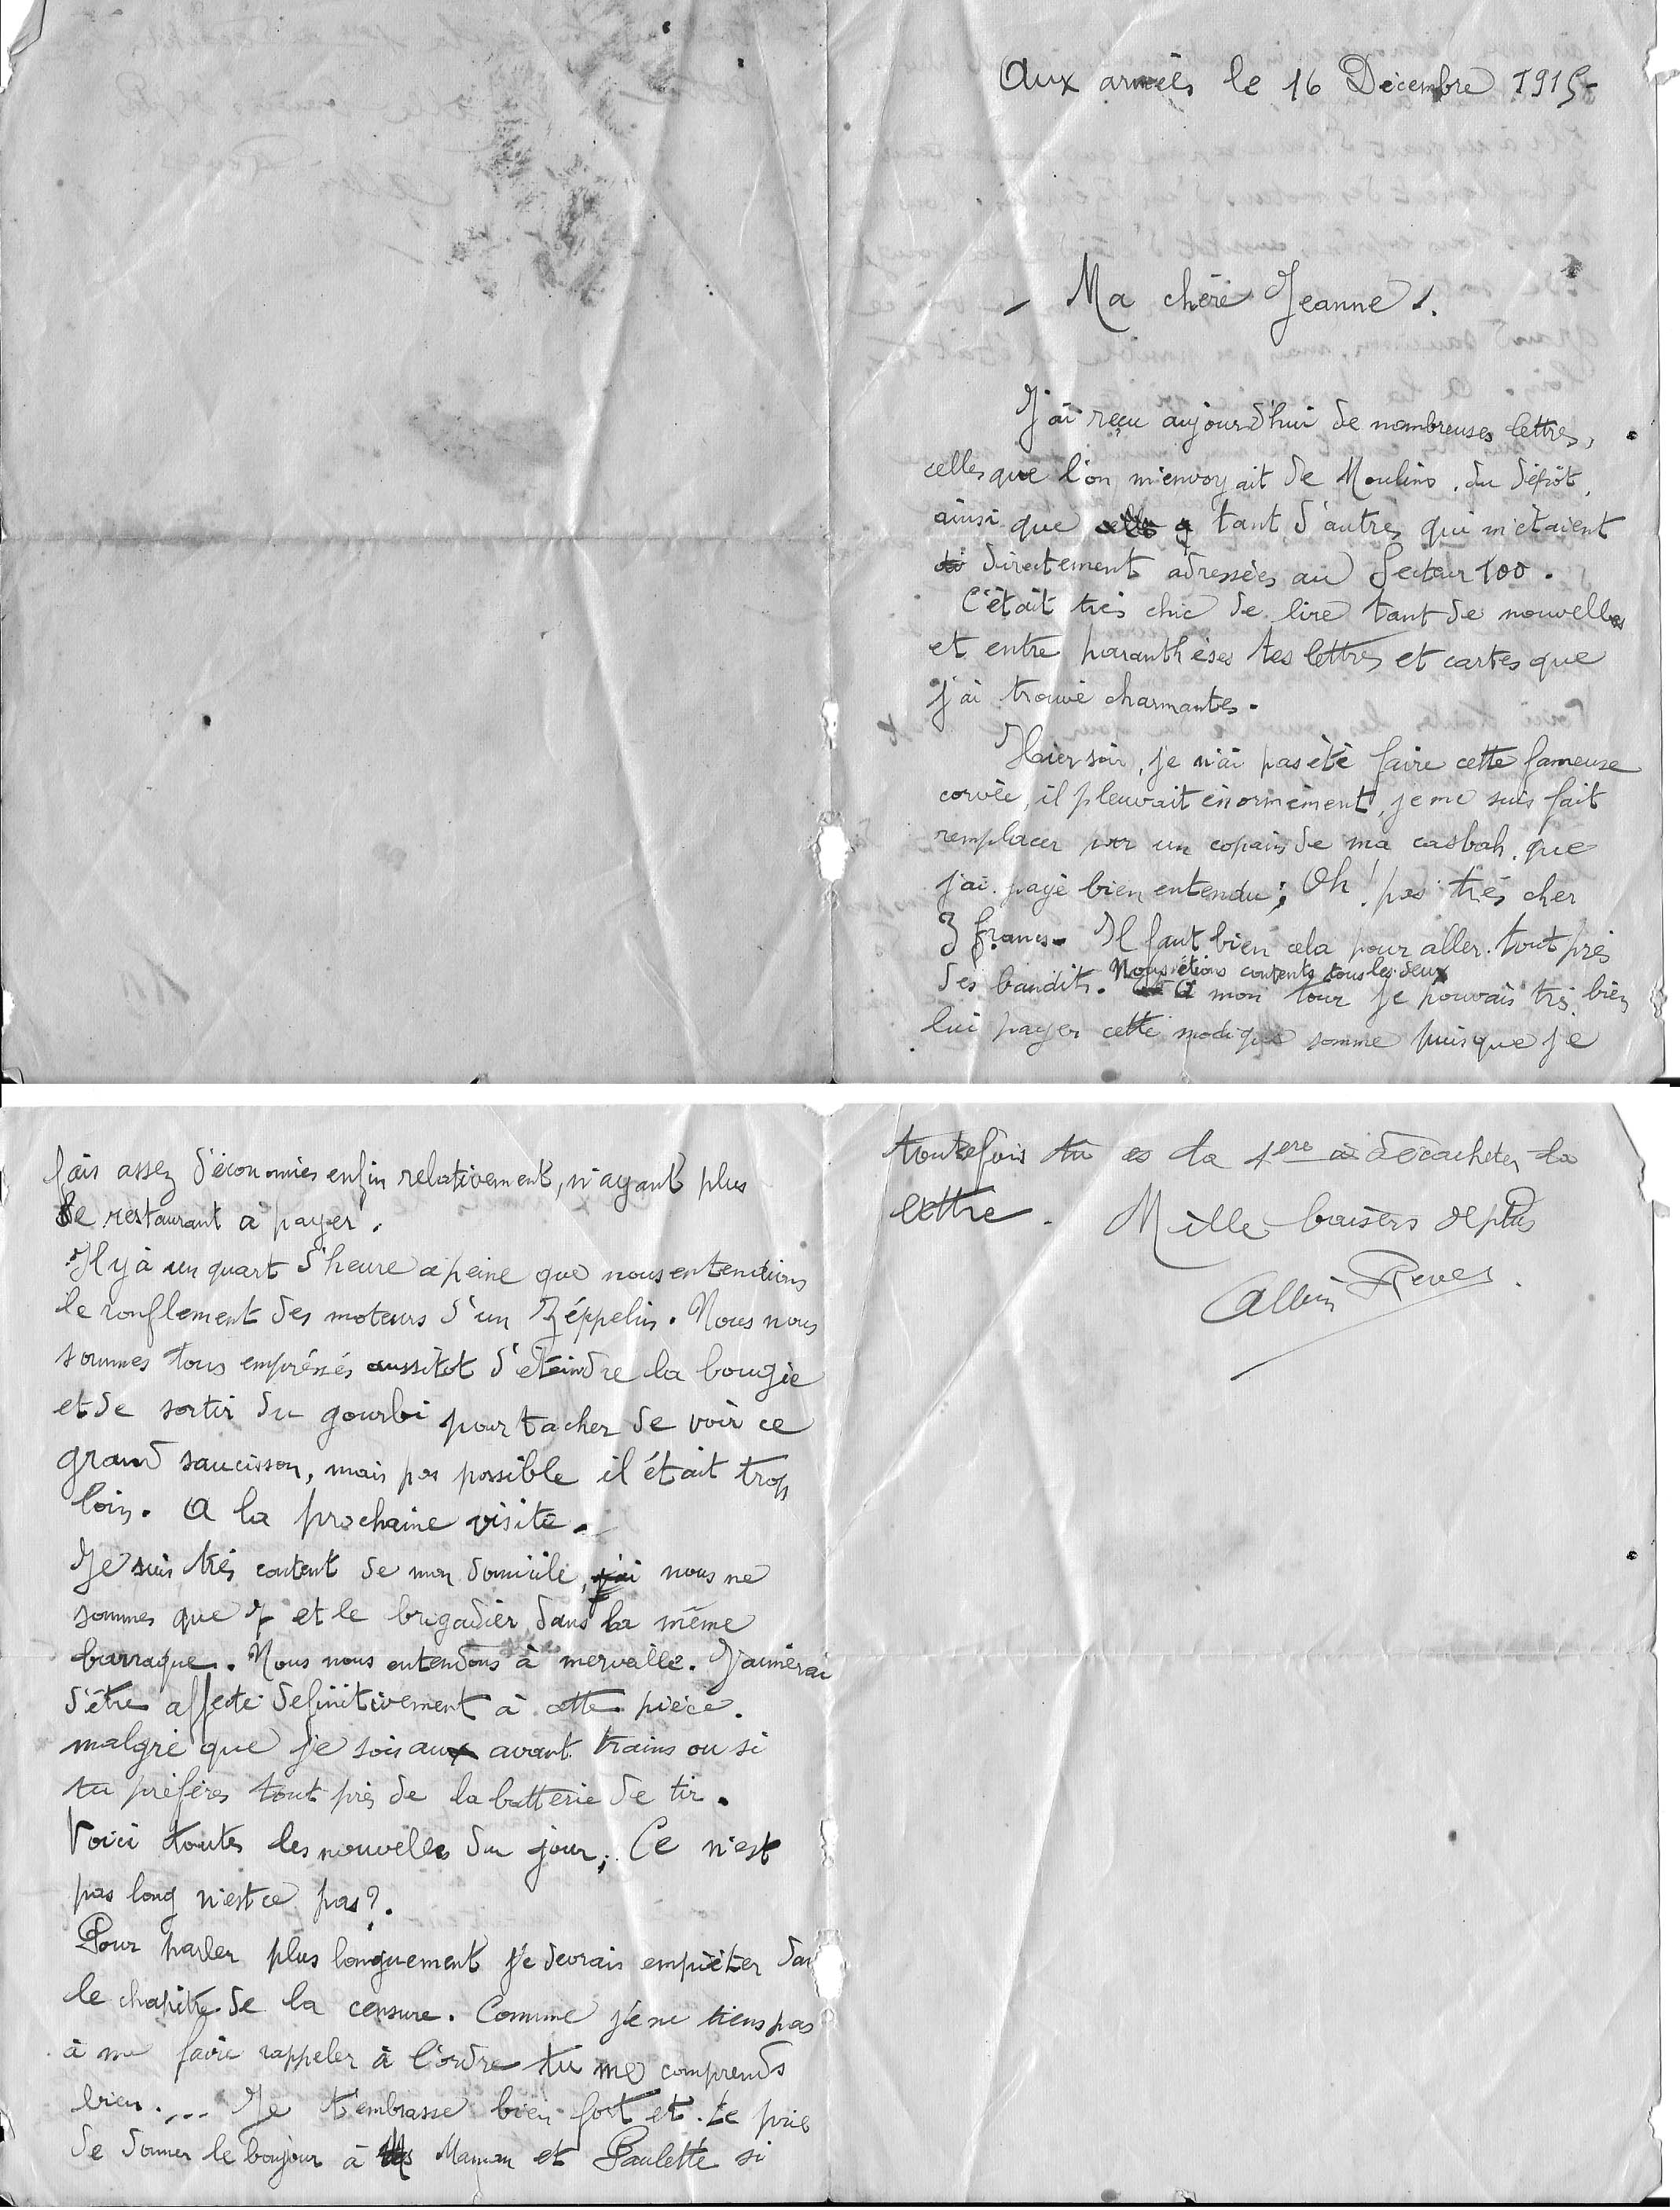 Aux armées le 16 Décembre 1915-
- Ma chère Jeanne !.
J'ai reçu aujourd'hui de nombreuses lettres,
celles que l'on m'envoyait de Moulins, du dépôt,
ainsi que celles q tant d'autres qui m'étaient
di directement adressées au Secteur 100.
C'était très chic de lire tant de nouvelles
et entre paranthèses tes lettres et cartes que
j'ai trouvé charmantes.
Hier soir, je n'ai pas été faire cette fameuse
corvée, il pleuvait énormément, je me suis fait
remplacer par un copain de ma casbah, que
j'ai payé bien entendu; Oh! pas très cher
3 francs. Il faut bien cela pour aller tout près
des bandits. Nous étions contents tous les deux
A mon tour je pouvais très bien
lui payer cette modique somme puisque je
fais assez d'économies enfin relativement, n'ayant plus
de restaurant à payer.
Il y à un quart d'heure à peine que nous entendions
le ronflement des moteurs d'un Zéppelin. Nous nous
sommes tous empréssés aussitôt d'éteindre la bougie
et de sortir du gourbi pour tacher de voir ce
grand saucisson, mais pas possible il était trop
loin. A la prochaine visite.
Je suis très content de mon domicile, j'ai nous ne
sommes que 7 et le brigadier dans la même
barraque. Nous nous entendons à merveille. J'aimerai
d'être affecté définitivement à cette pièce.
malgré que je sois aux avant trains ou si
tu préfères tout près de la batterie de tir.
Voici toutes les nouvelles du jour; Ce n'est
pas long n'est ce pas?.
Pour parler plus longuement je devrais empièter dans
le chapitre de la censure. Comme je ne tiens pas
à me faire rappeler à l'ordre tu me comprends
bien.... Je t'embrasse bien fort et te prie
de donner le bonjour à Maman et Paulette si
toutefois tu es la 1ere à décacheter la
lettre. Mille baisers de plus
Albin Reves.